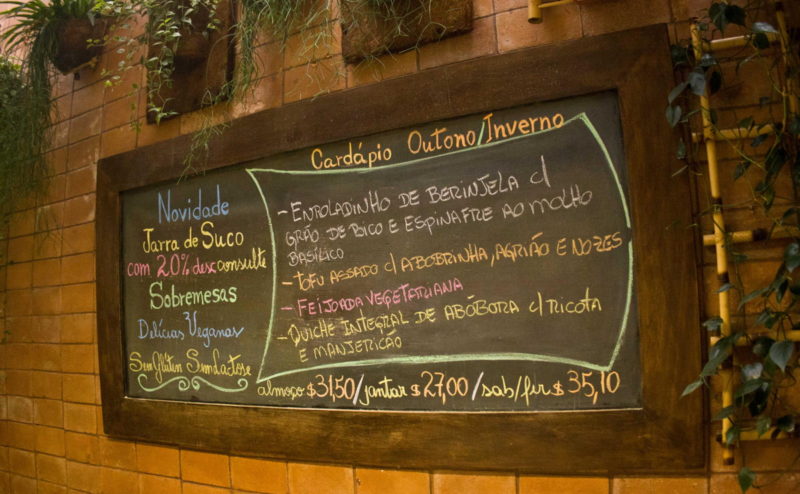 Cardápio Outono/Inverno
Novidade
Jarra de Suco
com 20% desc consulte
Sobremesas
Delícias Veganas
Sem Glúten Sem Lactose
- ENROLADINHO DE BERINJELA c/
GRÃO DE BICO E ESPINAFRE AO MOLHO
BASÍLICO
- TOFU ASSADO c/ ABOBRINHA, AGRIÃO E NOZES
- FEIJOADA VEGETARIANA
- QUICHE INTEGRAL DE ABÓBORA c/ RICOTA
E MANJERICÃO
almoço $31,50/jantar $27,00/sab/fir $35,10